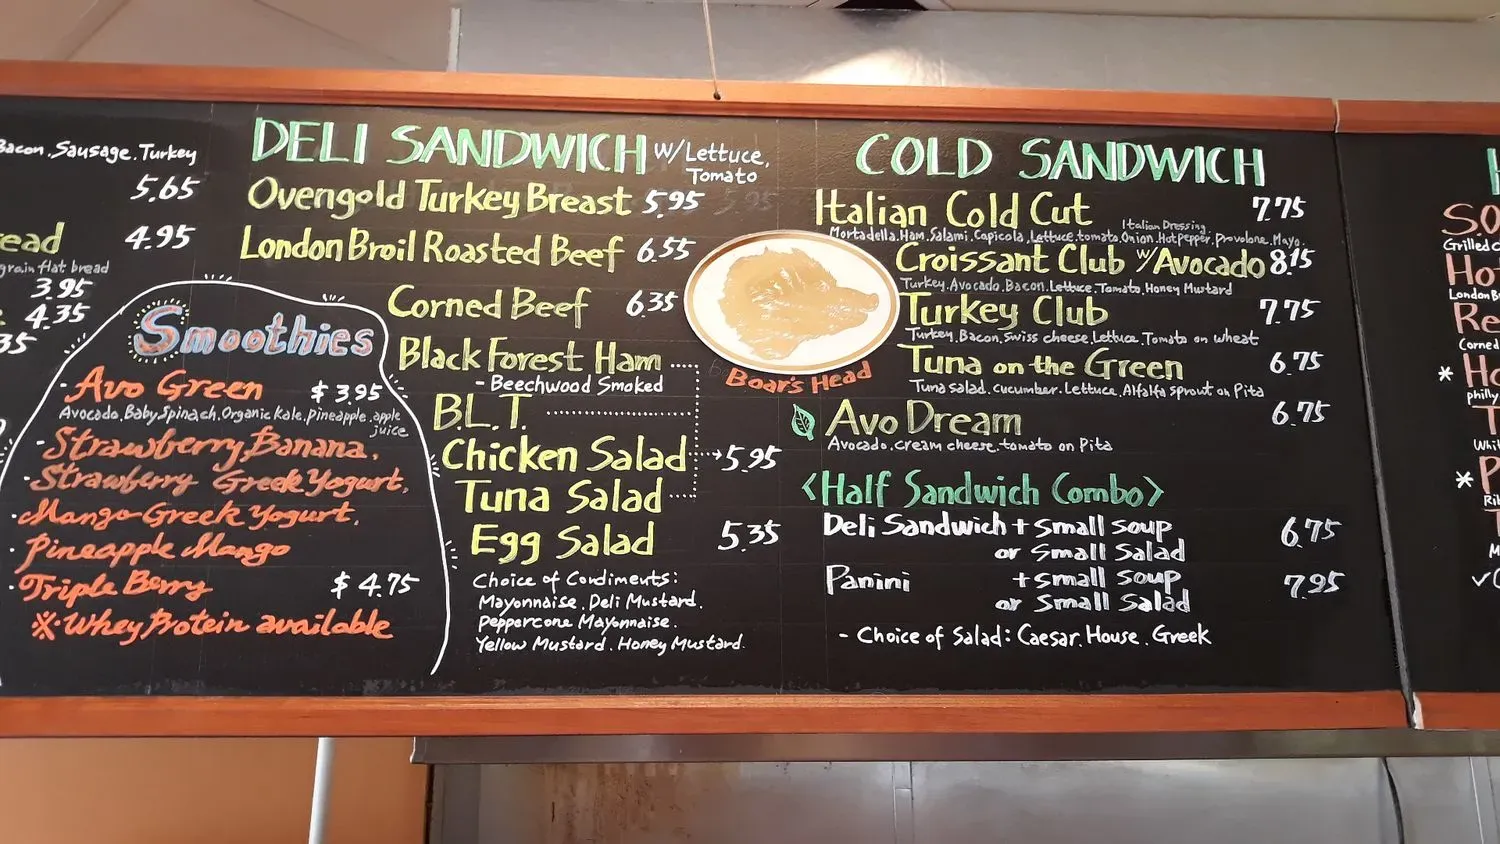 Bacon. Sausage. Turkey
5.65
4.95
grain flat bread
3.95
4.35
35
Smoothies
· Avo Green $3.95
Avocado. Baby Spinach. Organic Kale. Pineapple. apple
juice
· Strawberry Banana.
· Strawberry Greek Yogurt.
· Mango Greek Yogurt.
· Pineapple Mango
· Triple Berry $4.75
※ · Whey Protein available
DELI SANDWICH w/Lettuce,
Tomato
Ovengold Turkey Breast 5.95
London Broil Roasted Beef 6.55
Corned Beef 6.35
Black Forest Ham
- Beechwood Smoked
B.L.T.
Chicken Salad 5.95
Tuna Salad
Egg Salad 5.35
Choice of Condiments:
Mayonnaise. Deli Mustard.
Peppercone Mayonnaise.
Yellow Mustard. Honey Mustard.
Boar's Head
COLD SANDWICH
Italian Cold Cut 7.75
Italian Dressing
Mortadella. Ham. Salami. Capicola. Lettuce. tomato. Onion. Hot Pepper. Provolone. Mayo.
Croissant Club w/Avocado 8.15
Turkey. Avocado. Bacon. Lettuce. Tomato. Honey Mustard
Turkey Club 7.75
Turkey. Bacon. Swiss cheese. Lettuce. Tomato on wheat
Tuna on the Green 6.75
Tuna salad. cucumber. Lettuce. Alfalfa sprout on Pita
Avo Dream 6.75
Avocado. cream cheese. tomato on Pita
<Half Sandwich Combo>
Deli Sandwich + small soup 6.75
or small Salad
Panini + small soup 7.95
or small Salad
- Choice of Salad: Caesar. House. Greek